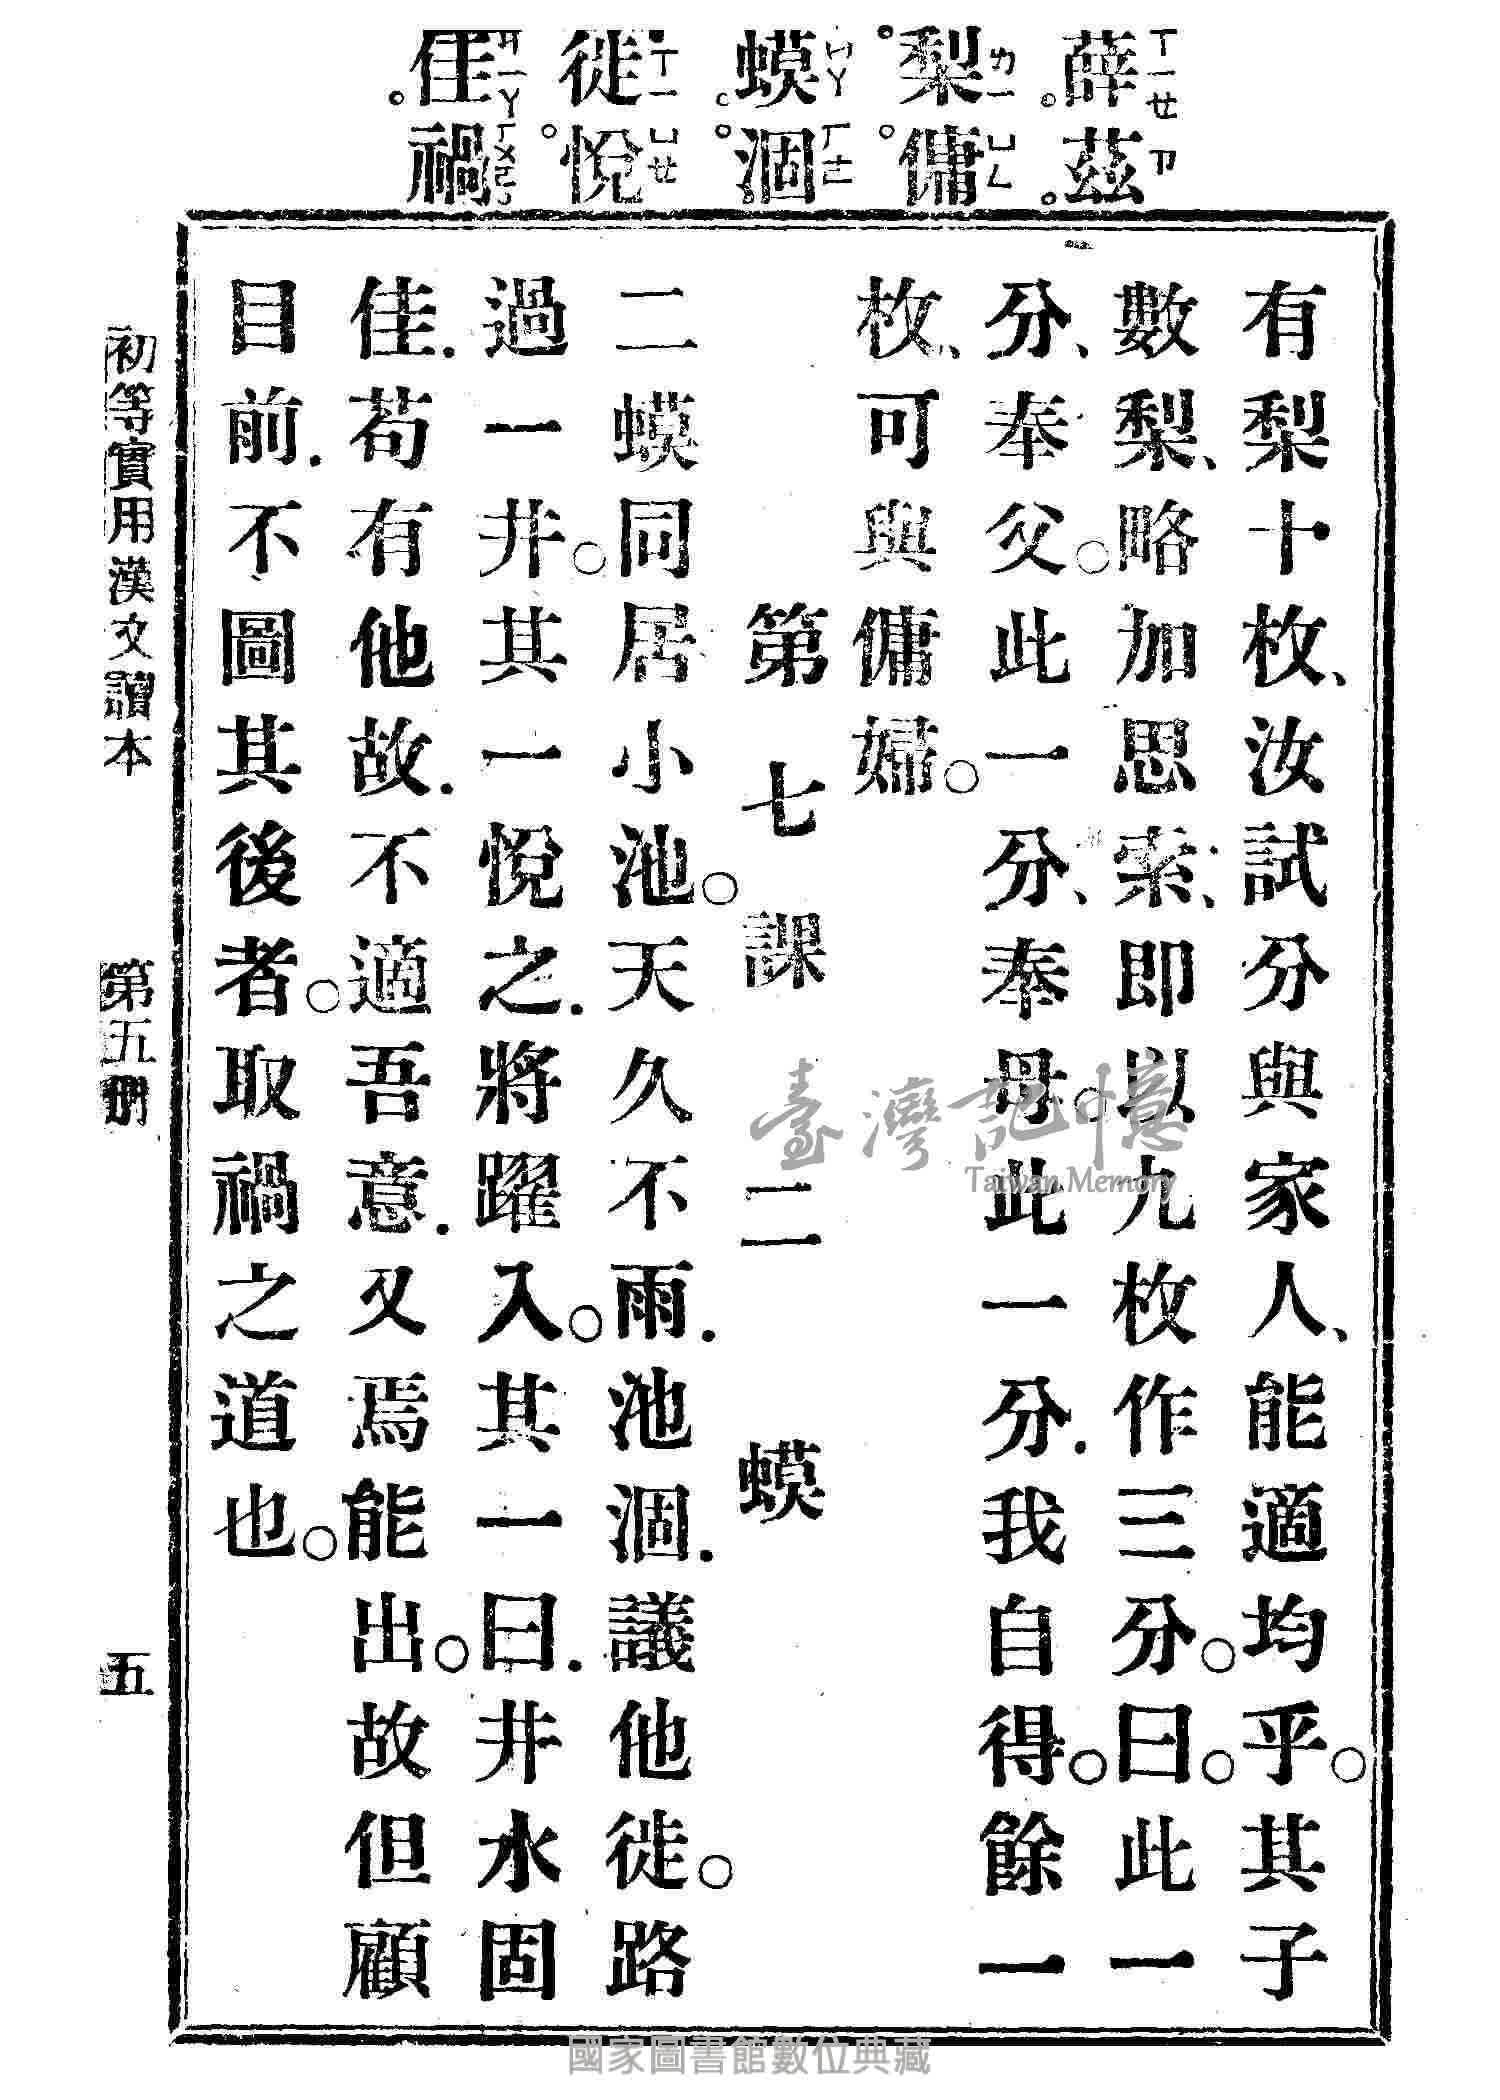 薛ㄒㄧㄝ 茲ㄗ
梨ㄌㄧ 傭ㄩㄥ
蟆ㄇㄚ 涸ㄏㄜ
徙ㄒㄧ 悅ㄩㄝ
佳ㄐㄧㄚ 禍ㄏㄨㄛ
有梨十枚、汝試分與家人、能適均乎。其子
數梨、略加思索、即以九枚作三分。曰。此一
分、奉父。此一分、奉母。此一分.我自得。餘一
枚、可與傭婦。
第七課 二蟆
二蟆同居小池。天久不雨.池涸.議他徙。路
過一井。其一悅之.將躍入。其一曰.井水固
佳.苟有他故.不適吾意.又焉能出。故但顧
目前.不圖其後者。取禍之道也。
初等實用漢文讀本 第五冊 五
臺灣記憶
Taiwan Memory
國家圖書館數位典藏